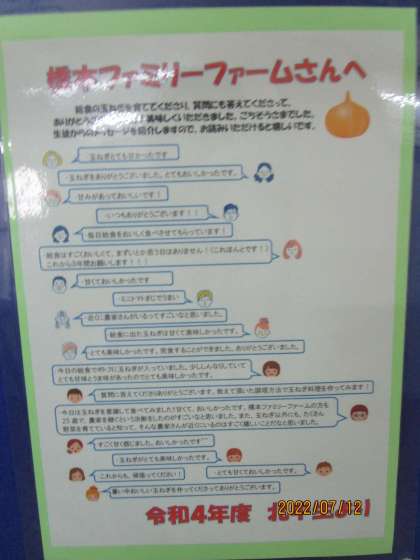 橋本ファミリーファームさんへ
給食の玉ねぎを育ててくださり、質問にも答えてくださって、
ありがとうございます。美味しくいただきました。ごちそうさまでした。
生徒からのメッセージを紹介しますので、お読みいただけると嬉しいです。
玉ねぎとても甘かったです
玉ねぎをありがとうございました。とてもおいしかったです。
甘みがあっておいしいです！
いつもありがとうございます！！
毎日給食をおいしく食べさせてもらっています！
給食はすごくおいしくて、まずいとか思う日はありません！（これほんとです！）
これから3年間お願いします！！！
甘くておいしかったです
ミニトマトまじでうまい
近くに農家さんがいるってすごいなと思いました。
給食に出た玉ねぎは甘くて美味しかったです。
とても美味しかったです。完食することができました。ありがとうございました。
今日の給食で玉ねぎが入っていました。少ししんなりしていて
とても甘味とうま味があったのでとても美味しかったです。
質問に答えてくださりありがとうございます。教えて頂いた調理方法で玉ねぎ料理を作ってみます！
今日は玉ねぎを意識して食べてみました！甘くて、おいしかったです。橋本ファミリーファームの方も
25歳で、農家を継ぐという決断をしたのがすごいなと思いました。また、玉ねぎ以外にも、たくさん
野菜を育てていると知って、そんな農家さんが近くにいるのはすごく嬉しいことだなと思いました。
すごく甘く感じました。おいしかったです
玉ねぎがとても美味しかったです。
これからも、頑張ってください！
とても甘くておいしかったです。
暑い中おいしい玉ねぎを作ってくださってありがとうございます。
2022/07/12
令和4年度
より